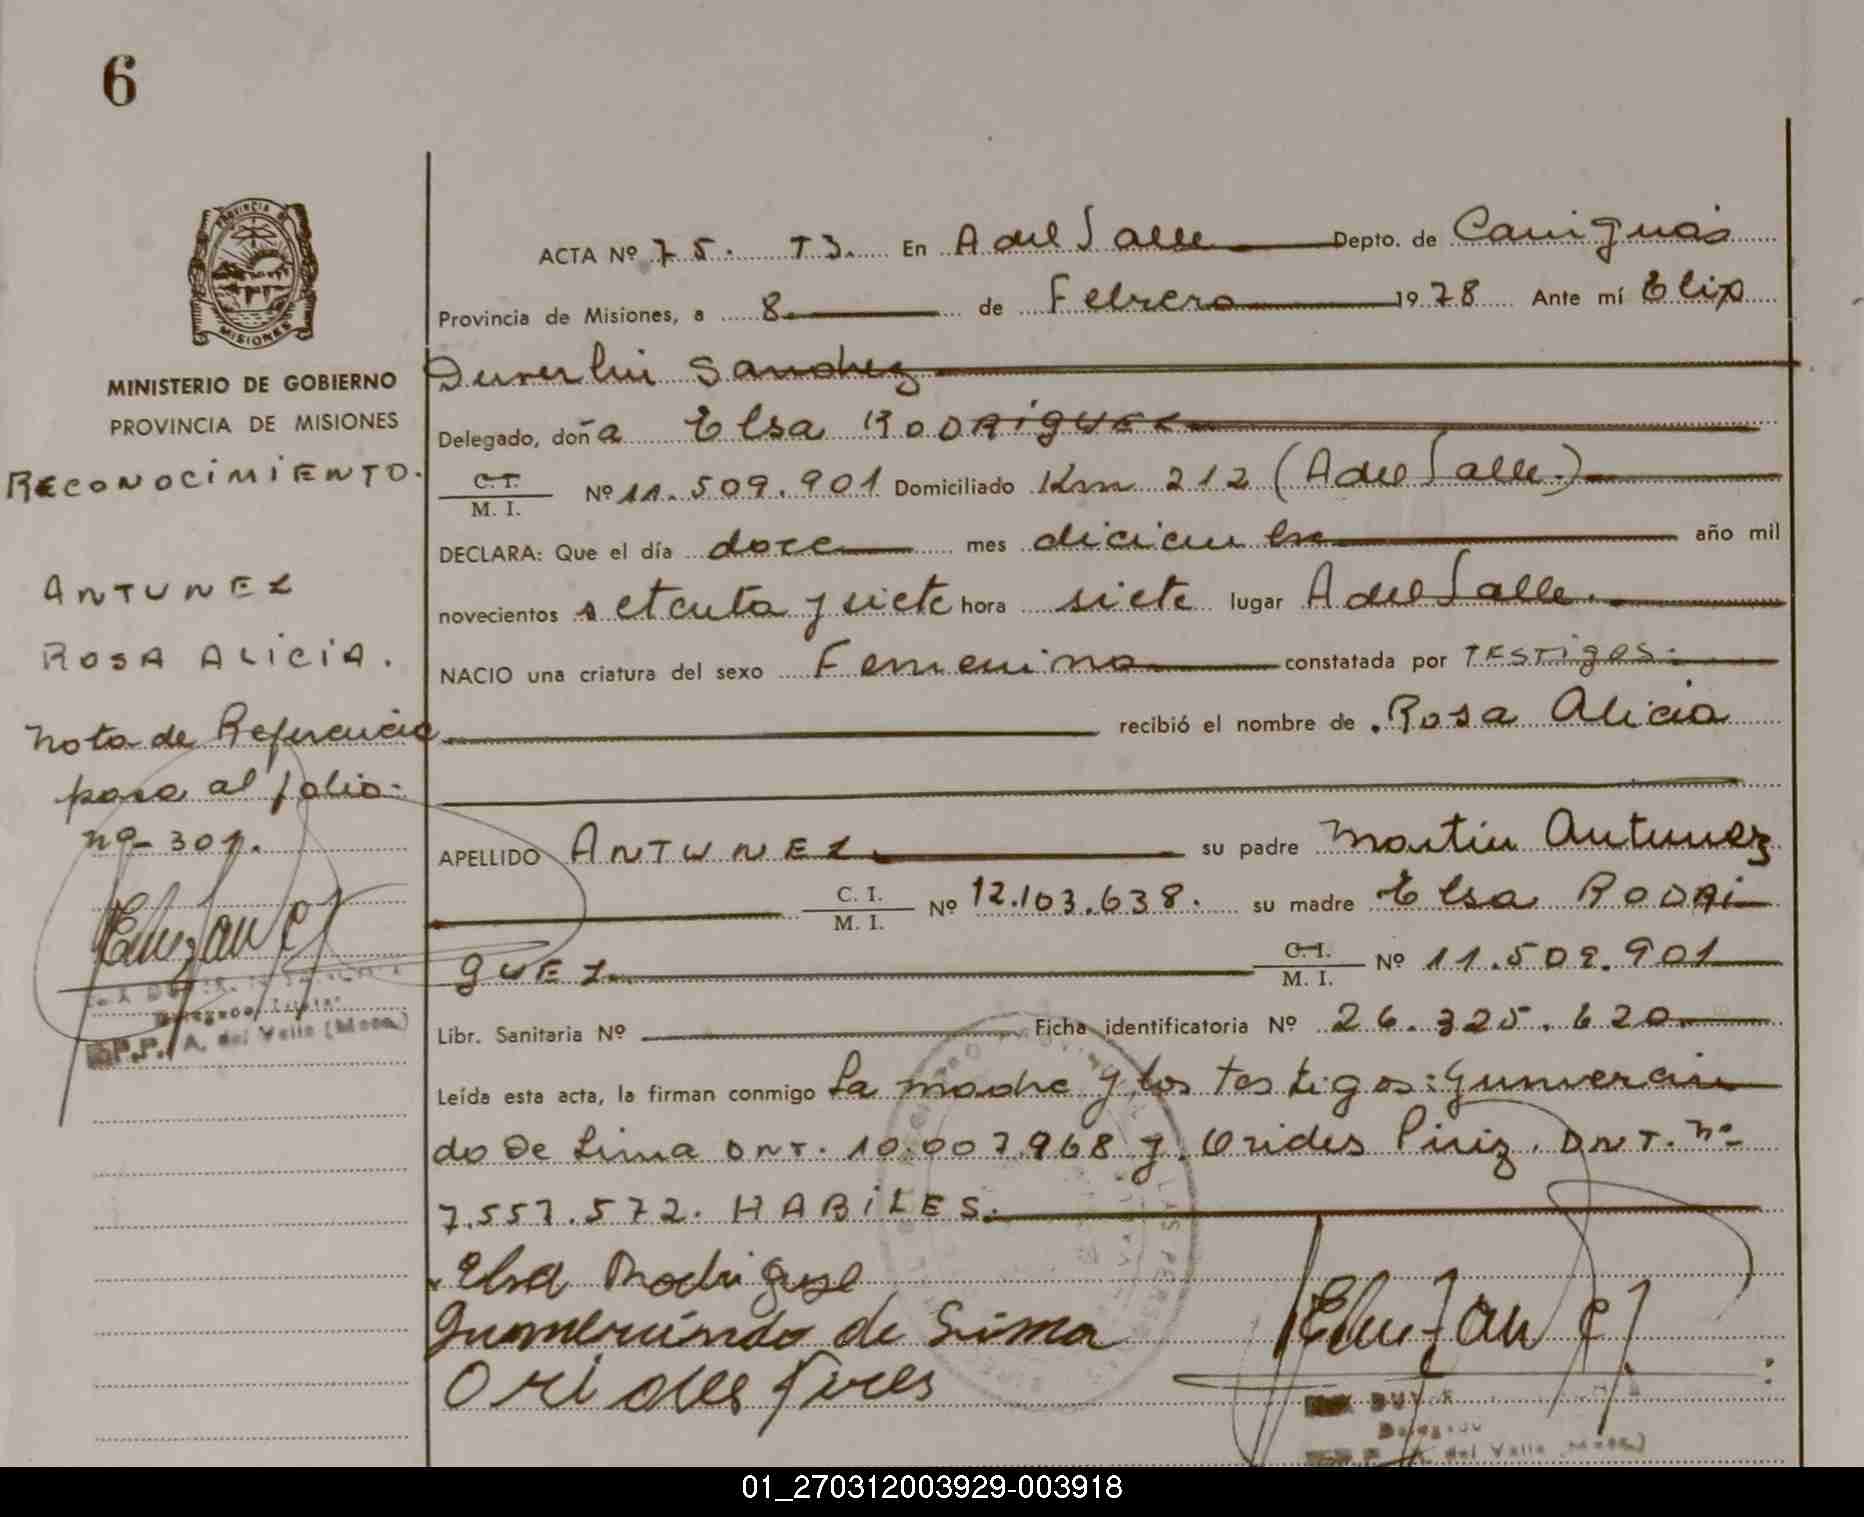 6
PROVINCIA DE
MISIONES
MINISTERIO DE GOBIERNO
PROVINCIA DE MISIONES
RECONOCIMIENTO.
ANTUNEZ
ROSA ALICIA.
Nota de Referencia
pasa al folio
nº 301.
Delegado
A. del Valle (Mnes.)
ACTA Nº 75. T3. En A del Valle Depto. de Cainguás
Provincia de Misiones, a 8 de Febrero 1978 Ante mí Elix
Sanchez
Delegado, doña Elsa RODRIGUEZ
C. I.
M. I. Nº 11.509.901 Domiciliado Km 212 (A del Valle.)
DECLARA: Que el día doce mes diciembre año mil
novecientos setenta y siete hora siete lugar A del Valle.
NACIO una criatura del sexo Femenino constatada por TESTIGOS.
recibió el nombre de Rosa Alicia
APELLIDO ANTUNEZ su padre Martin Antunez
C. I.
M. I. Nº 12.103.638. su madre Elsa RODRI
GUEZ C. I.
M. I. Nº 11.509.901
Libr. Sanitaria Nº Ficha identificatoria Nº 26.325.620.
Leída esta acta, la firman conmigo La madre y los testigos: Gumercin
do De Lima DNI. 10.007.968 y Orides Piriz. DNI. nº
7.557.572. HABILES.
Elsa Rodriguez
Gumercindo de Lima
Orides Pires
Delegado
del Valle
01_270312003929-003918